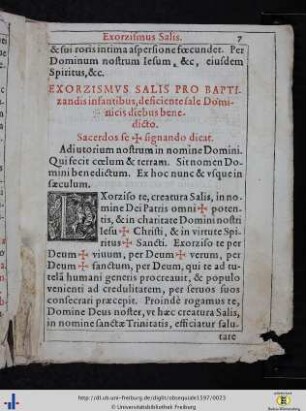 Exorzismus Salis. 7
& sui roris intima aspersione fœcundet. Per
Dominum nostrum Iesum, &c, eiusdem
Spiritus, &c.
EXORZISMVS SALIS PRO BAPTI-
zandis infantibus, deficiente sale Domi-
nicis diebus bene-
dicto.
Sacerdos se ✠ signando dicat.
Adiutorium nostrum in nomine Domini.
Qui fecit cœlum & terram. Sit nomen Do-
mini benedictum. Ex hoc nunc & vsque in
sæculum.
EXorziso te, creatura Salis, in no-
mine Dei Patris omni ✠ poten-
tis, & in charitate Domini nostri
Iesu ✠ Christi, & in virtute Spi-
ritus ✠ Sancti. Exorziso te per
Deum ✠ viuum, per Deum ✠ verum, per
Deum ✠ sanctum, per Deum, qui te ad tu-
telā humani generis procreauit, & populo
venienti ad credulitatem, per seruos suos
consecrari præcepit. Proindè rogamus te,
Domine Deus noster, vt hæc creatura Salis,
in nomine sanctæ Trinitatis, efficiatur salu-
tare
http://dl.ub.uni-freiburg.de/diglit/obsequiale1597/0023
© Universitätsbibliothek Freiburg